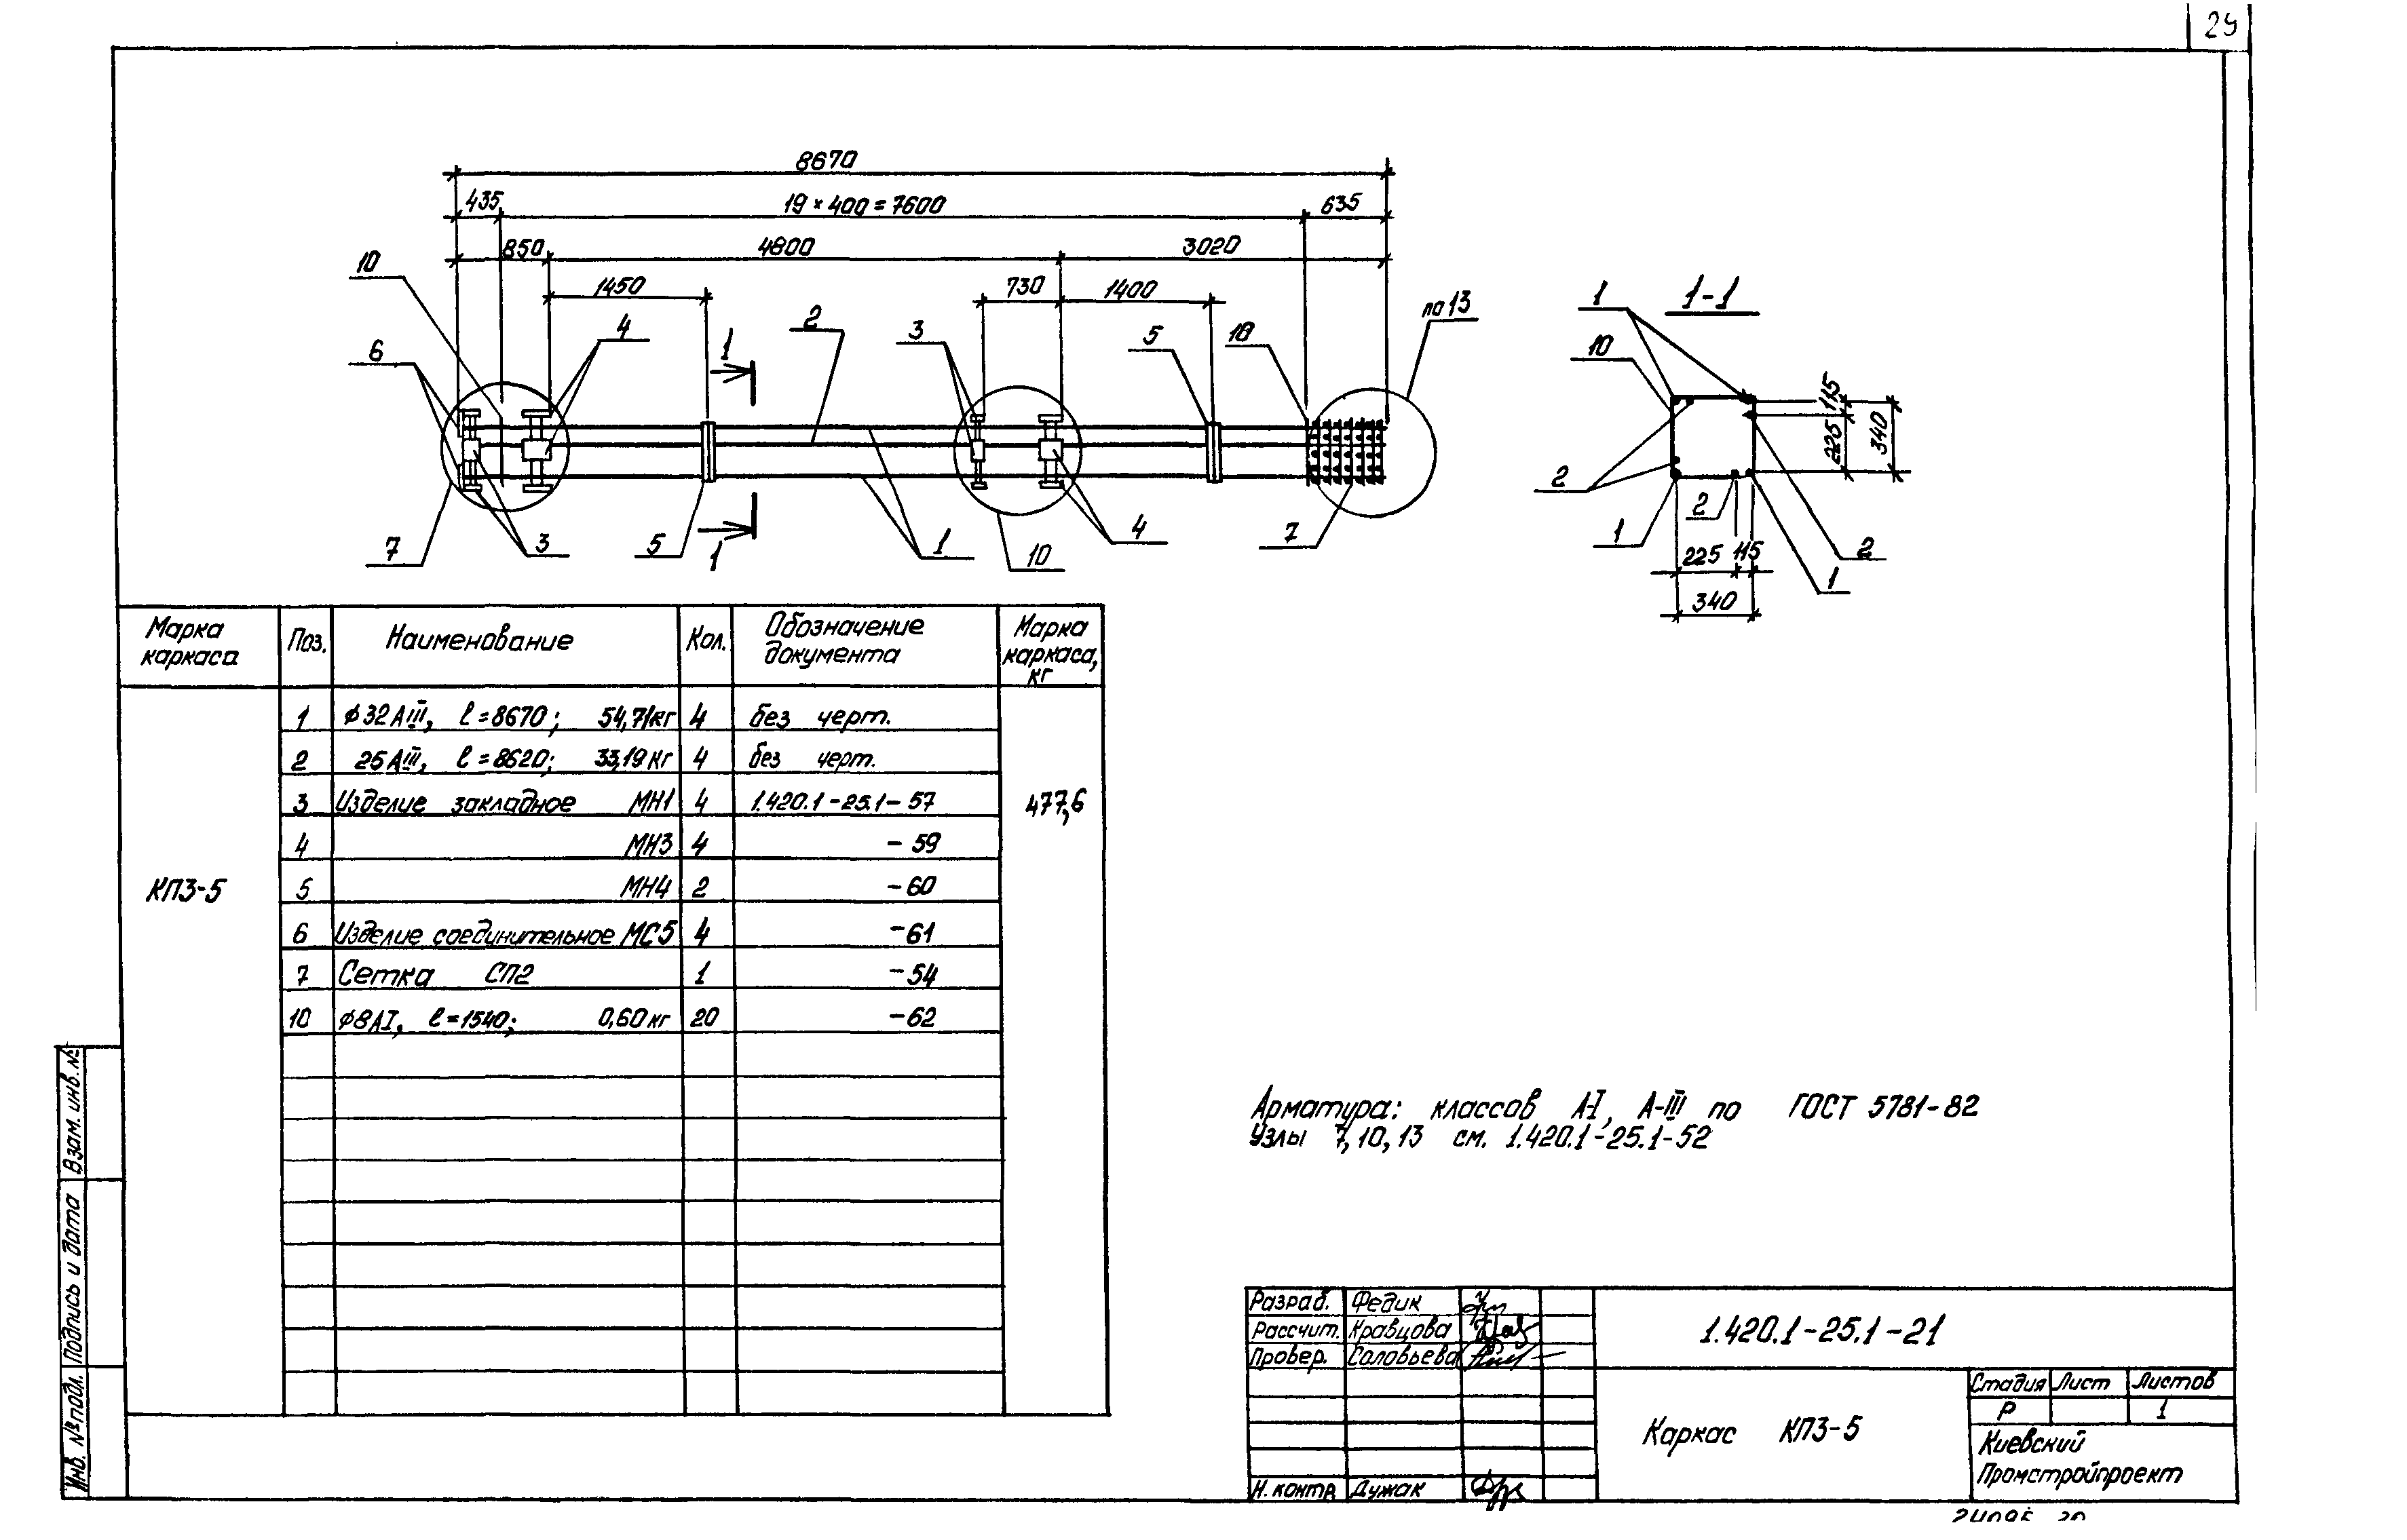 29
8670
435 19 × 400 = 7600 635
850 4800 3020
1450 730 1400
10 6 4 1 2 3 5 10 по 13
7 3 5 1 1 10 4 7
1-1
1
10
2
1
2
2
1
115
225
340
225 115
340
Марка каркаса Поз. Наименование Кол. Обозначение документа Марка каркаса, кг
КП3-5 477,6
1 ϕ32АIII, ℓ=8670; 54,71кг 4 без черт.
2 25АIII, ℓ=8620; 33,19кг 4 без черт.
3 Изделие закладное МН1 4 1.420.1-25.1-57
4 МН3 4 -59
5 МН4 2 -60
6 Изделие соединительное МС5 4 -61
7 Сетка СП2 1 -54
10 ϕ8АI, ℓ=1540; 0,60кг 20 -62
Арматура: классов А-I, А-III по ГОСТ 5781-82
Узлы 7, 10, 13 см. 1.420.1-25.1-52
Взам. инв. №
Подпись и дата
Инв. № подл.
Разраб. Федик
Рассчит. Кравцова
Провер. Соловьева
Н. контр Дужак
1.420.1-25.1-21
Каркас КП3-5
Стадия Лист Листов
Р 1
Киевский
Промстройпроект